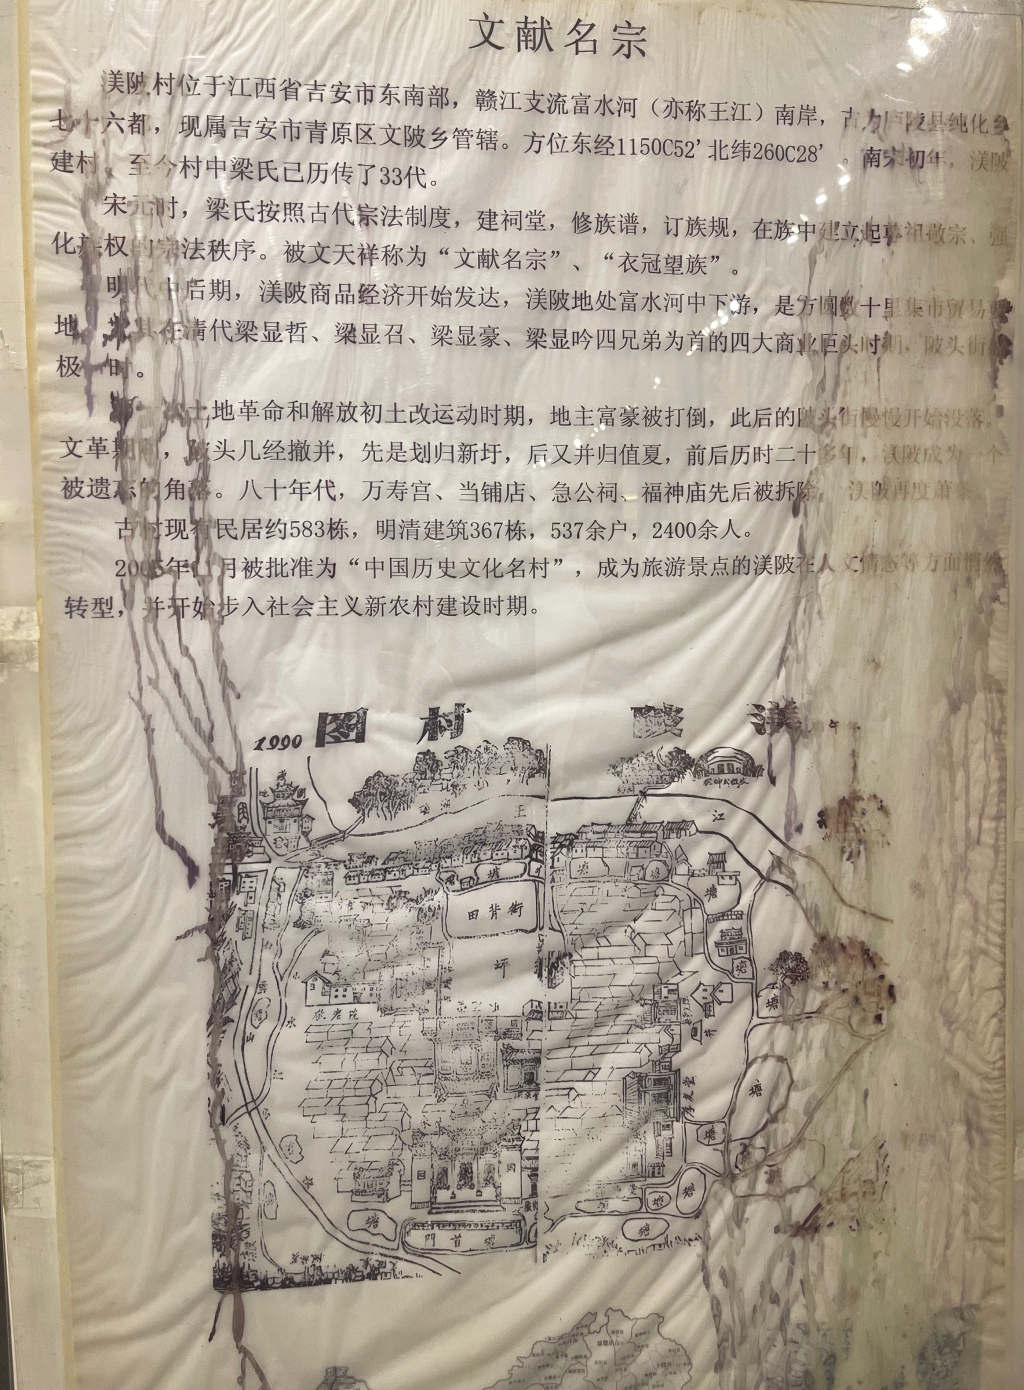 文献名宗
渼陂村位于江西省吉安市东南部，赣江支流富水河（亦称王江）南岸，古为庐陵县纯化乡
七十六都，现属吉安市青原区文陂乡管辖。方位东经1150C52'北纬260C28'。南宋初年，渼陂
建村，至今村中梁氏已历传了33代。
宋元时，梁氏按照古代宗法制度，建祠堂，修族谱，订族规，在族中建立起敬宗、强
化族权的宗法秩序。被文天祥称为“文献名宗”、“衣冠望族”。
明代中后期，渼陂商品经济开始发达，渼陂地处富水河中下游，是方圆数十里集市贸易
地，其在清代梁显哲、梁显召、梁显豪、梁显吟四兄弟为首的四大商业巨头时期，陂头街
极一时。
土地革命和解放初土改运动时期，地主富豪被打倒，此后的陂头街慢慢开始没落。
文革期间，陂头几经撤并，先是划归新圩，后又并归值夏，前后历时二十多年，渼陂成为一个
被遗忘的角落。八十年代，万寿宫、当铺店、急公祠、福神庙先后被拆除，渼陂再度萧条。
古村现有民居约583栋，明清建筑367栋，537余户，2400余人。
年 月被批准为“中国历史文化名村”，成为旅游景点的渼陂在人文情态等方面悄然
转型，并开始步入社会主义新农村建设时期。
1990 图村陂渼
王
江
塘
塘
塘
塘
田背街
坪
塘
塘
敬老院
水
井
塘
塘
塘
塘
塘
門首塘
塘